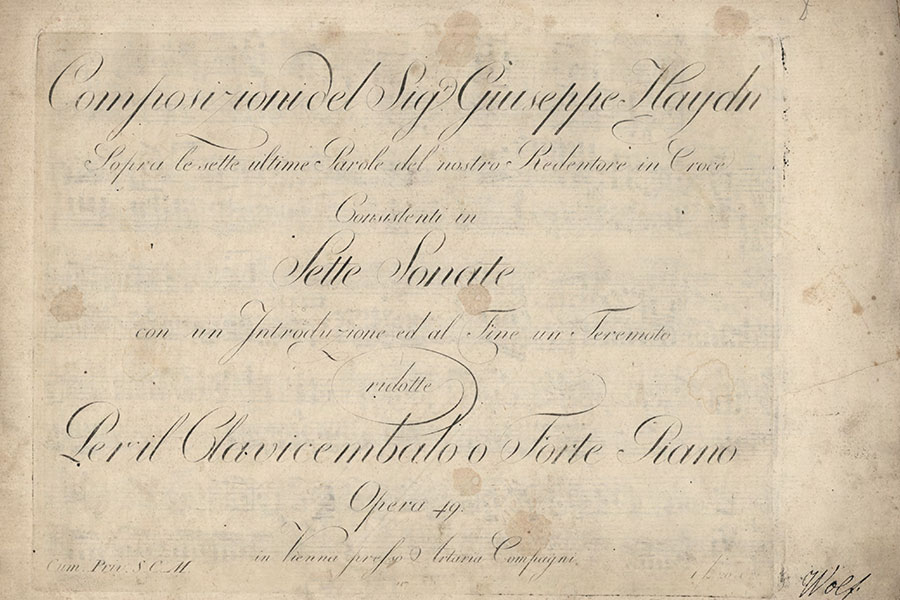 Composizioni del Sigr. Giuseppe Haydn
Sopra le sette ultime Parole del nostro Redentore in Croce
Consistenti in
Sette Sonate
con un Introduzione ed al Fine un Teremoto
ridotte
Per il Clavicembalo o Forte Piano
Opera 49.
in Vienna presso Artaria Compagni.
Cum. Priv. S. C. M.
Wolf.